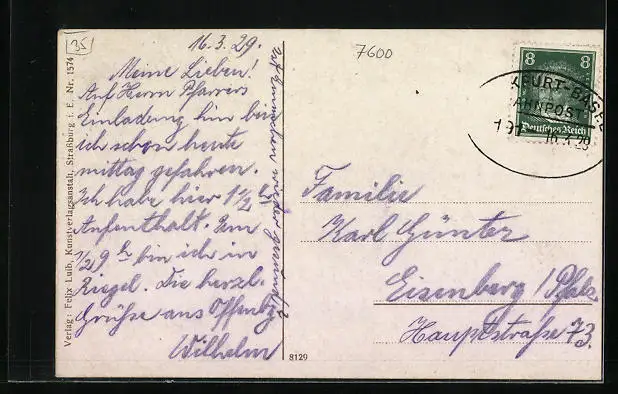 35
16.3.29.
7600
Meine Lieben!
Auf Herrn Pfarrers
Einladung hin bin
ich schon heute
mittag gefahren.
Ich habe hier 1 1/2 h
Aufenthalt. Um
1/2 9 h bin ich in
Riegel. Die herzl.
Grüße aus Offenbg.
Wilhelm
wieder
8
KFURT-BASEL
AHNPOST
Deutsches Reich
16.3.29
Familie
Karl Günter
Eisenberg / Pfalz
Hauptstraße 73.
8129
Verlag: Felix Luib, Kunstverlagsanstalt, Straßburg i. E. Nr. 1574